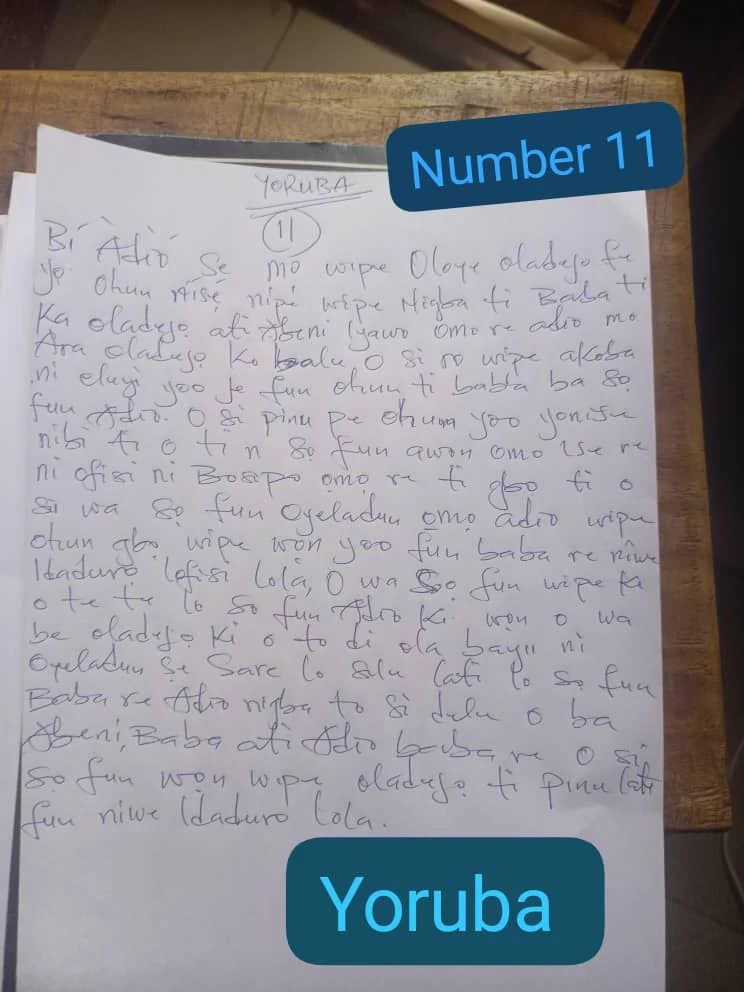 Number 11
YORUBA
11
Bí Àdìò Se mo wipe Oloye oladejo fe
yo ohun níse nipé wipe Nigba ti Baba ti
Ka oladejo ati Abeni Iyawo omo re adio mo
Ara oladejo Ko balu O si ro wipe akoba
ni eleyi yoo je fun ohun ti babta ba So
fun Adio. O si pinu pe ohun yoo yonise
nibi ti o ti n So fun awon omo Ise re
ni ofisi ni Bosepo omo re ti gbo ti o
si wa So fun Oyeladun omo adio wipe
ohun gbo wipe won yoo fun baba re niwe
Idaduro lofisi lola, O wa So fun wipe Ka
o te te lo So fun Adio Ki won o wa
be oladejo Ki o to di ola bayii ni
Oyeladun Se Sare lo Sile lati lo So fun
Baba re Adio nigba to Si dele o ba
Abeni, Baba ati Adio baba re O si
So fun won wipe oladejo ti pinu lati
fun niwe Idaduro lola.
Yoruba